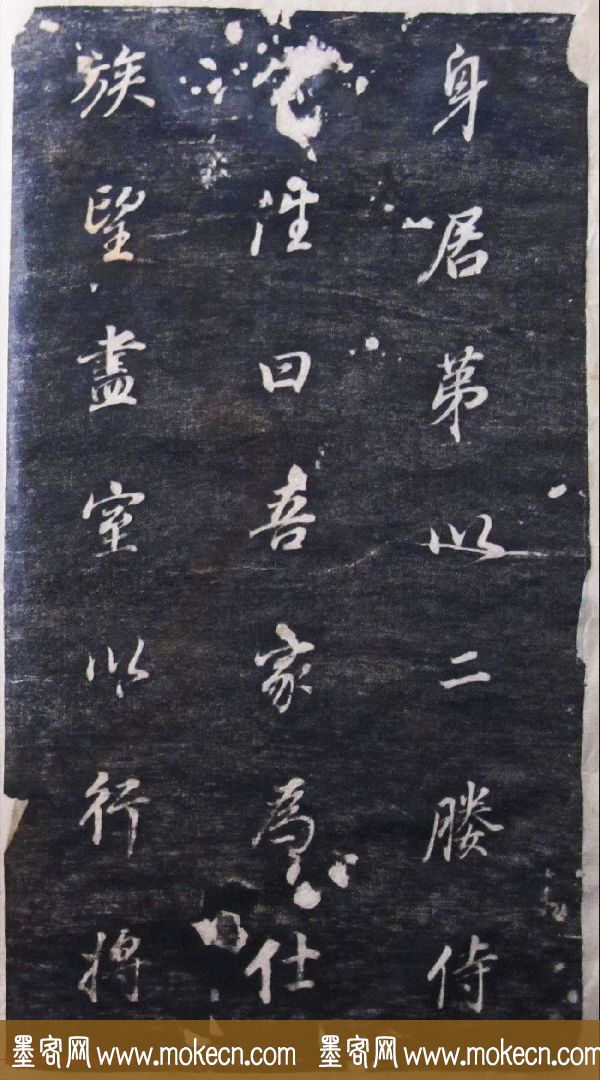 身居第以二媵侍
曰吾家為仕
族望盡室以行將
墨客网 www.mokecn.com 墨客网 www.mokecn.com